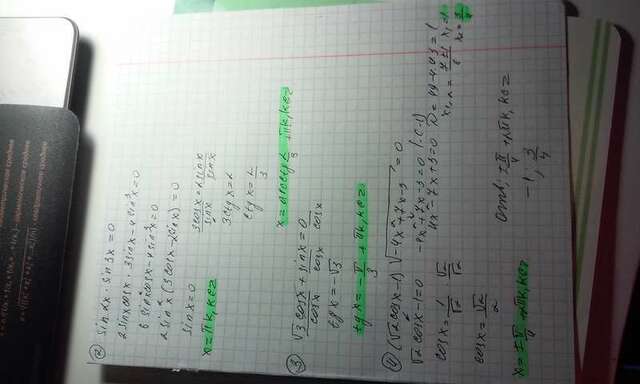 — гармоническое среднее
— квадратичное среднее
② sin 2x · sin 3x = 0
2 sinx cosx · 3 sinx - 4 sin³x = 0
6 sin²x cosx - 4 sin³x = 0
2 sin²x (3 cosx - 2 sinx) = 0
sinx = 0
x = πk, k∈z
3cosx/sinx = 2sinx/sinx
3 ctg x = 2
ctg x = 2/3
x = arcctg 2/3 + πk, k∈z
③ √3 cosx/cosx + sinx/cosx = 0/cosx
tg x = -√3
tg x = -π/3 + πk, k∈z
④ (√2 cosx - 1) √-4x² + 7x - 3 = 0
√2 cosx - 1 = 0
-4x² + 7x - 3 = 0 | · (-1)
4x² - 7x + 3 = 0 D = 49 - 4·4·3 = 1
cosx = 1/√2 · √2/√2
x₁,₂ = 7±1/8 x₁ = 1
x₂ = 3/4
cosx = √2/2
x = ±π/4 + 2πk, k∈z
Ответ: ±π/4 + 2πk, k∈z
-1; 3/4